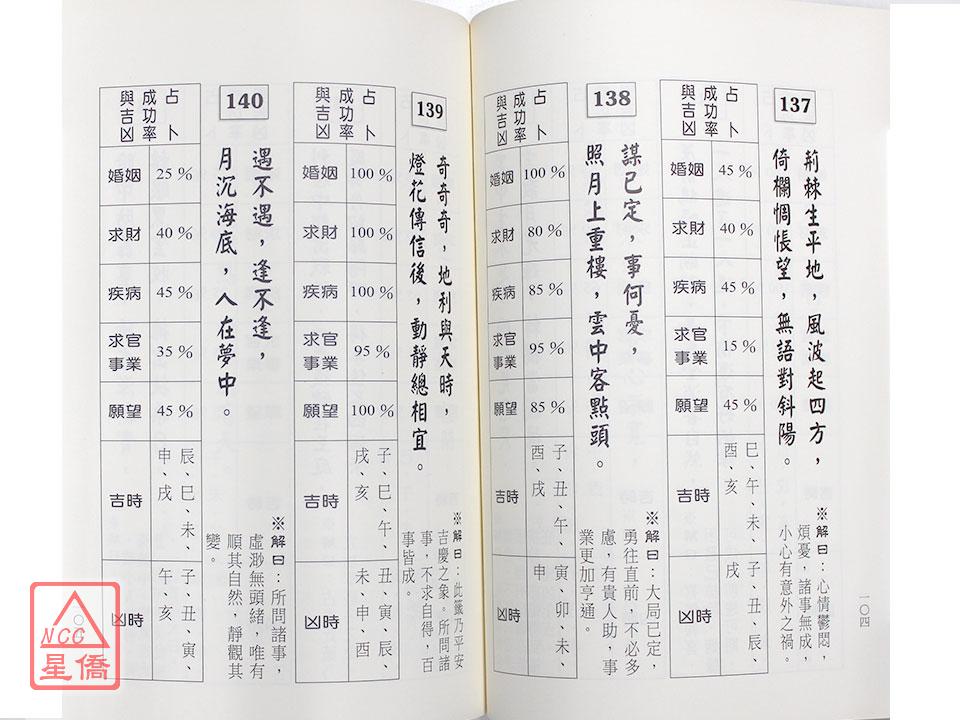 137
荊棘生平地，風波起四方，
倚欄惆悵望，無語對斜陽。
※解曰：心情鬱悶，
煩憂，諸事無成，
小心有意外之禍。
占卜
成功率
與吉凶
婚姻 45 %
求財 40 %
疾病 45 %
求官事業 15 %
願望 45 %
吉時 巳、午、未、
酉、亥
凶時 子、丑、辰、
戌
一〇四
138
謀已定，事何憂，
照月上重樓，雲中客點頭。
※解曰：大局已定，
勇往直前，不必多
慮，有貴人助，事
業更加亨通。
占卜
成功率
與吉凶
婚姻 100 %
求財 80 %
疾病 85 %
求官事業 95 %
願望 85 %
吉時 子、丑、午、
酉、戌
凶時 寅、卯、未、
申
139
奇奇奇，地利與天時，
燈花傳信後，動靜總相宜。
※解曰：此籤乃平安
吉慶之象。所問諸
事，不求自得，百
事皆成。
占卜
成功率
與吉凶
婚姻 100 %
求財 100 %
疾病 100 %
求官事業 95 %
願望 100 %
吉時 子、巳、午、
戌、亥
凶時 丑、寅、辰、
未、申、酉
140
遇不遇，逢不逢，
月沉海底，人在夢中。
※解曰：所問諸事，
虛渺無頭緒，唯有
順其自然，靜觀其
變。
占卜
成功率
與吉凶
婚姻 25 %
求財 40 %
疾病 45 %
求官事業 35 %
願望 45 %
吉時 辰、巳、未、
申、戌
凶時 子、丑、寅、
午、亥
NCC
星僑